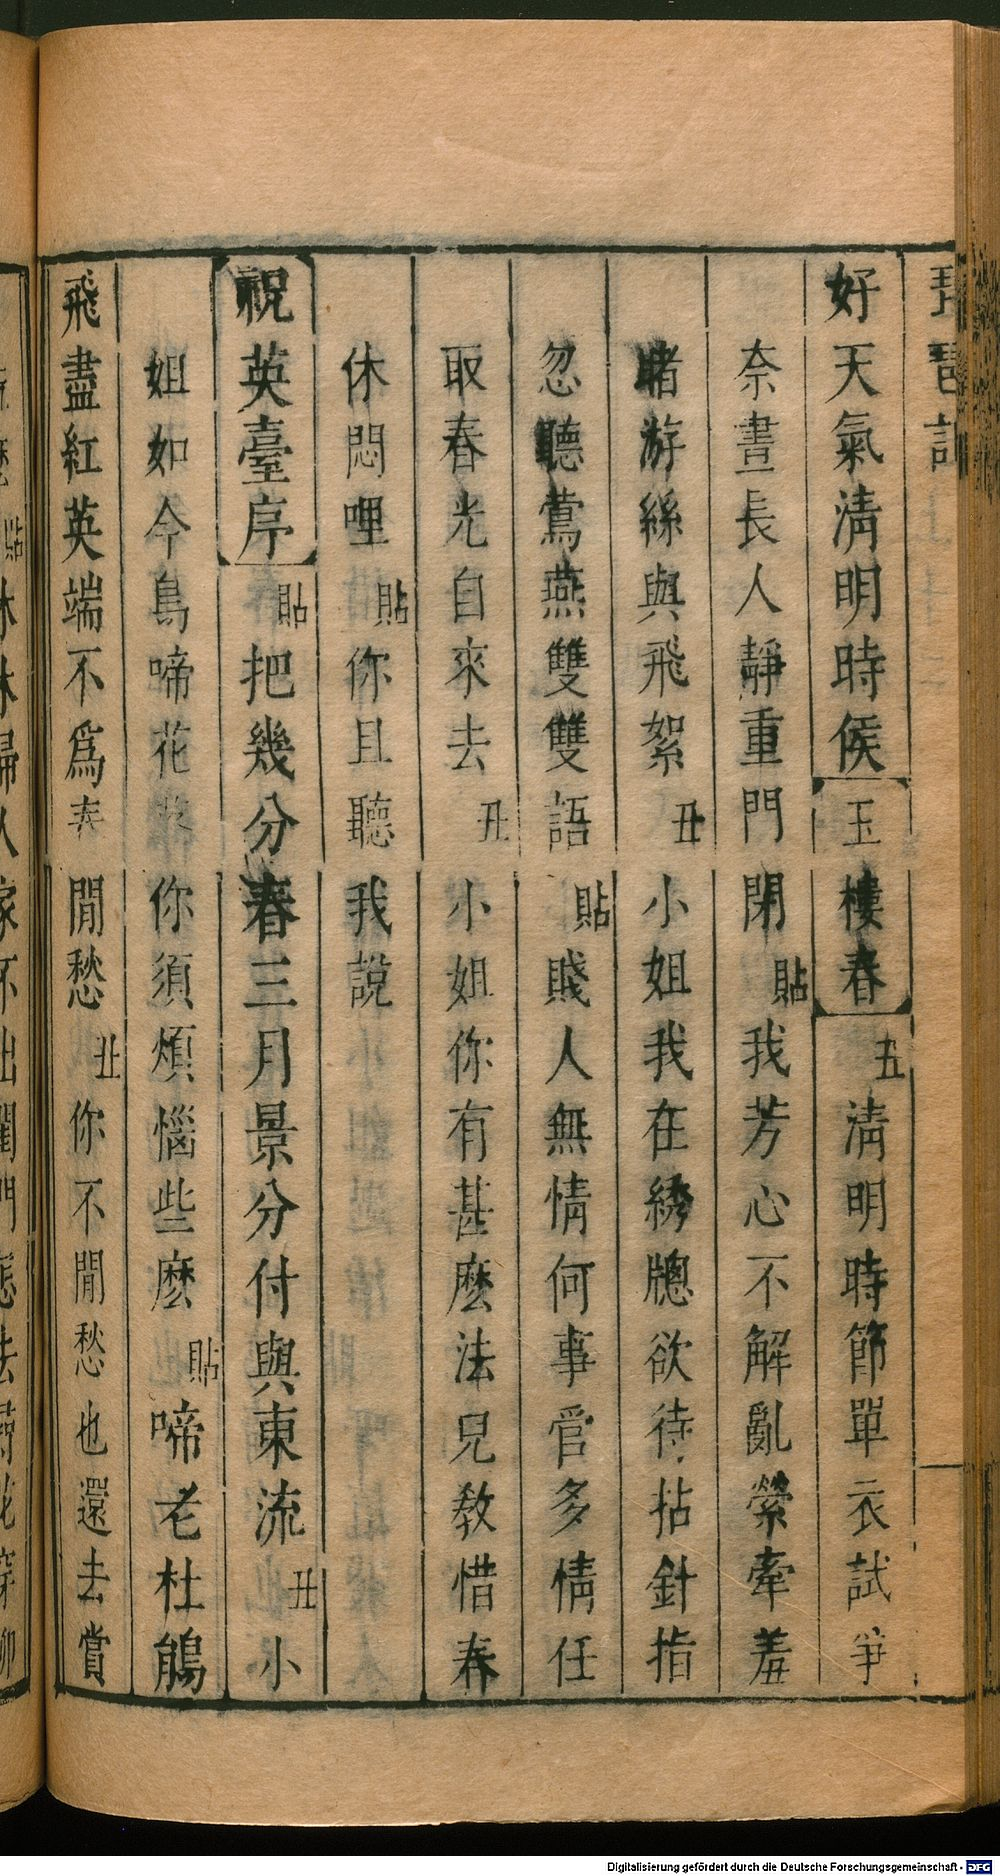 琵琶記
好天氣清明時侯玉樓春丑清明時節單衣試爭
奈晝長人靜重門閉貼我芳心不解亂縈牽羞
睹游絲與飛絮丑小姐我在綉牕欲待拈針指
忽聽鶯燕雙雙語貼賤人無情何事官多情任
取春光自來去丑小姐你有甚麽法兒教惜春
休悶哩貼你且聽我說
祝英臺序貼把幾分春三月景分付與東流丑小
姐如今鳥啼花你須煩惱些麽貼啼老杜鵑
飛盡紅英端不爲春閒愁丑你不閒愁也還去賞
貼休休婦人家不出閨門怎去尋花穿柳
Digitalisierung gefördert durch die Deutsche Forschungsgemeinschaft - DFG